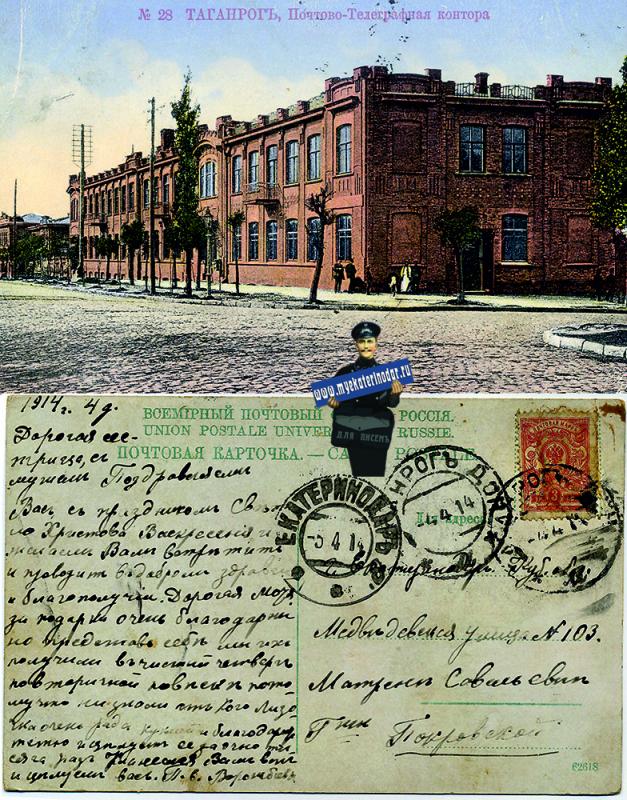 № 28 ТАГАНРОГЪ, Почтово-Телеграфная контора
www.myekaterinodar.ru
ДЛЯ ПИСЕМЪ
1914 г. 4 д.
ВСЕМIРНЫЙ ПОЧТОВЫЙ РОССIЯ.
UNION POSTALE UNIVER RUSSIE.
ПОЧТОВАЯ КАРТОЧКА. — CA POSTALE
Дорогая се-
стрица, с
мужем Поздравляем
Васъ съ праздником Свет
ло Христова Воскресения и
желаем Вам встретить
и проводить в добром здрави
и благополучи. Дорогая Мотя
за подарки очень благодарни
но представь себе ми их
получили въ чистий четверг
по вторичной повестк пото
му что не знали от кого Лизо
чка очень рада куклой и благодар
и целует
и целуем вас. П. В.
ЕКАТЕРИНОДАРЪ
-5 4 14
АНРОГЪ ДОН
4 14
Для адреса
3
4 14
г. Екатеринодар Кубан.
Медведевская улица N. 103.
Матрене Савельевне
Г-же Покровской
62618